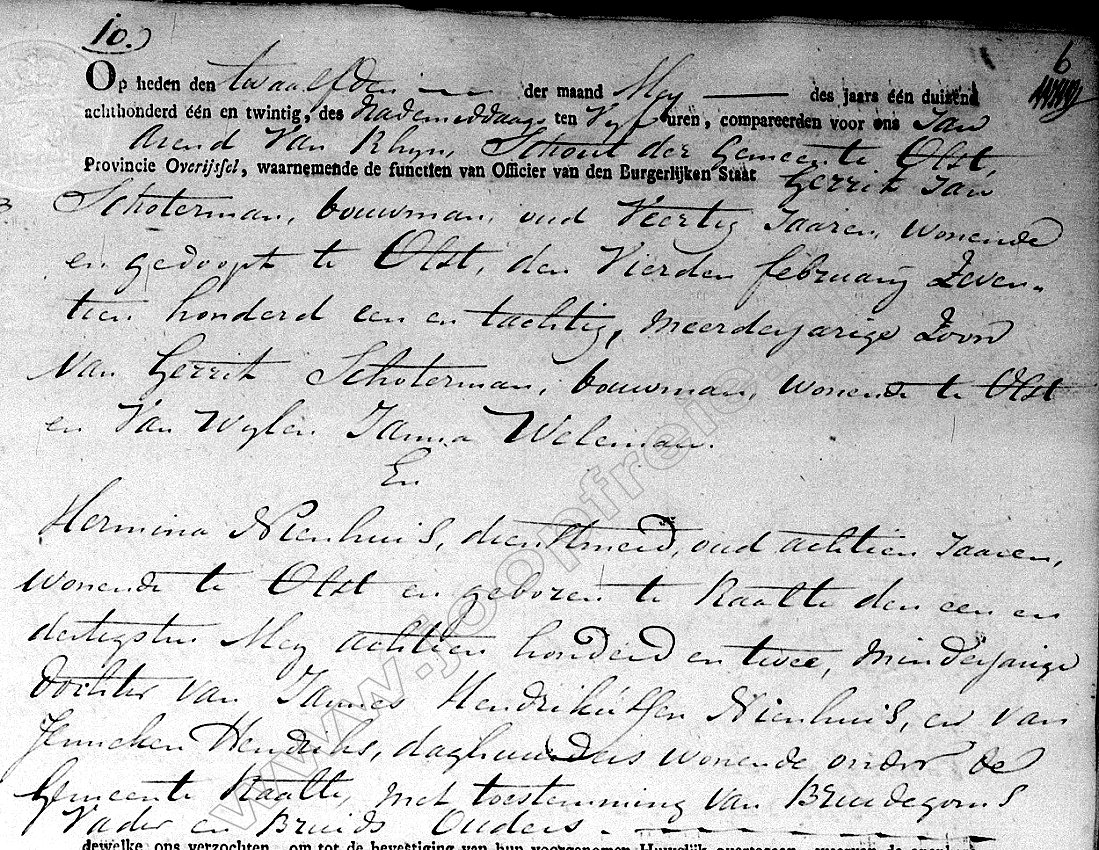 10.
6
Op heden den twaalfden der maand Mey des jaars één duizend
achthonderd één en twintig, des Nademiddaags ten Vyf uren, compareerden voor ons Jan
Arend Van Rhyn, Schout der Gemeente Olst,
Provincie Overijssel, waarnemende de functien van Officier van den Burgerlijken Staat Gerrit Jan
Schoterman, bouwman, oud Veertig Jaaren, wonende
en gedoopt te Olst, den Vierden february Zeven-
tien honderd een en tachtig, meerderjarige Zoon
van Gerrit Schoterman, bouwman, wonende te Olst
en Van Wylen Janna Weleman.
En
Hermina Nienhuis, dienstmeid, oud achtien Jaaren,
wonende te Olst en geboren te Raalte den een en
dertigsten Mey achtien honderd en twee, minderjarige
dochter van Jannes Hendriksen Nienhuis, en van
Jenneken Hendriks, daghuurders wonende onder de
Gemeente Raalte, met toestemming van Bruidegoms
Vader en Bruids Ouders
dewelke ons verzochten, om tot de bevestiging van hun voorgenomen Huwelijk
www.joopfreie